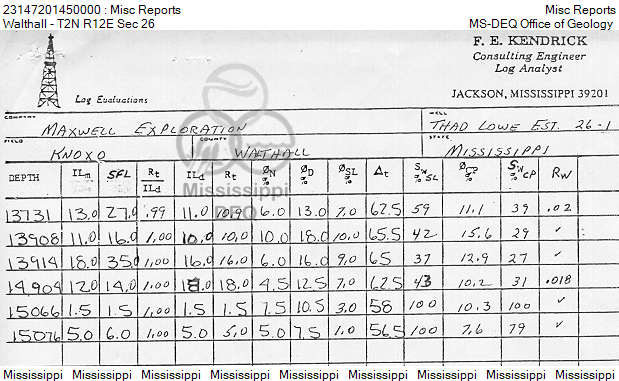 23147201450000 : Misc Reports Misc Reports
Walthall - T2N R12E Sec 26 MS-DEQ Office of Geology
F. E. KENDRICK
Consulting Engineer
Log Analyst
Log Evaluations JACKSON, MISSISSIPPI 39201
COMPANY WELL
MAXWELL EXPLORATION THAD LOWE EST. 26-1
FIELD COUNTY STATE
KNOXO WALTHALL MISSISSIPPI
DEPTH ILm SFL Rt/ILd ILd Rt ØN % ØD % ØSL % Δt Sw % SL ØCP % Sw % CP RW
13731 13.0 27.0 .99 11.0 10.9 6.0 13.0 7.0 62.5 59 11.1 39 .02
13908 11.0 16.0 1.00 10.0 10.0 10.0 18.0 10.0 65.5 42 15.6 29 ✓
13914 18.0 35.0 1.00 16.0 16.0 6.0 16.0 9.0 65 37 12.9 27 ✓
14904 12.0 14.0 1.00 18.0 18.0 4.5 12.5 7.0 62.5 43 10.2 31 .018
15066 1.5 1.5 1.00 1.5 1.5 7.5 10.5 3.0 58 100 10.3 100 ✓
15076 5.0 6.0 1.00 5.0 5.0 5.0 7.5 1.0 56.5 100 7.6 79 ✓
Mississippi
DEQ
Mississippi Mississippi Mississippi Mississippi Mississippi Mississippi Mississippi Mississippi Mississippi